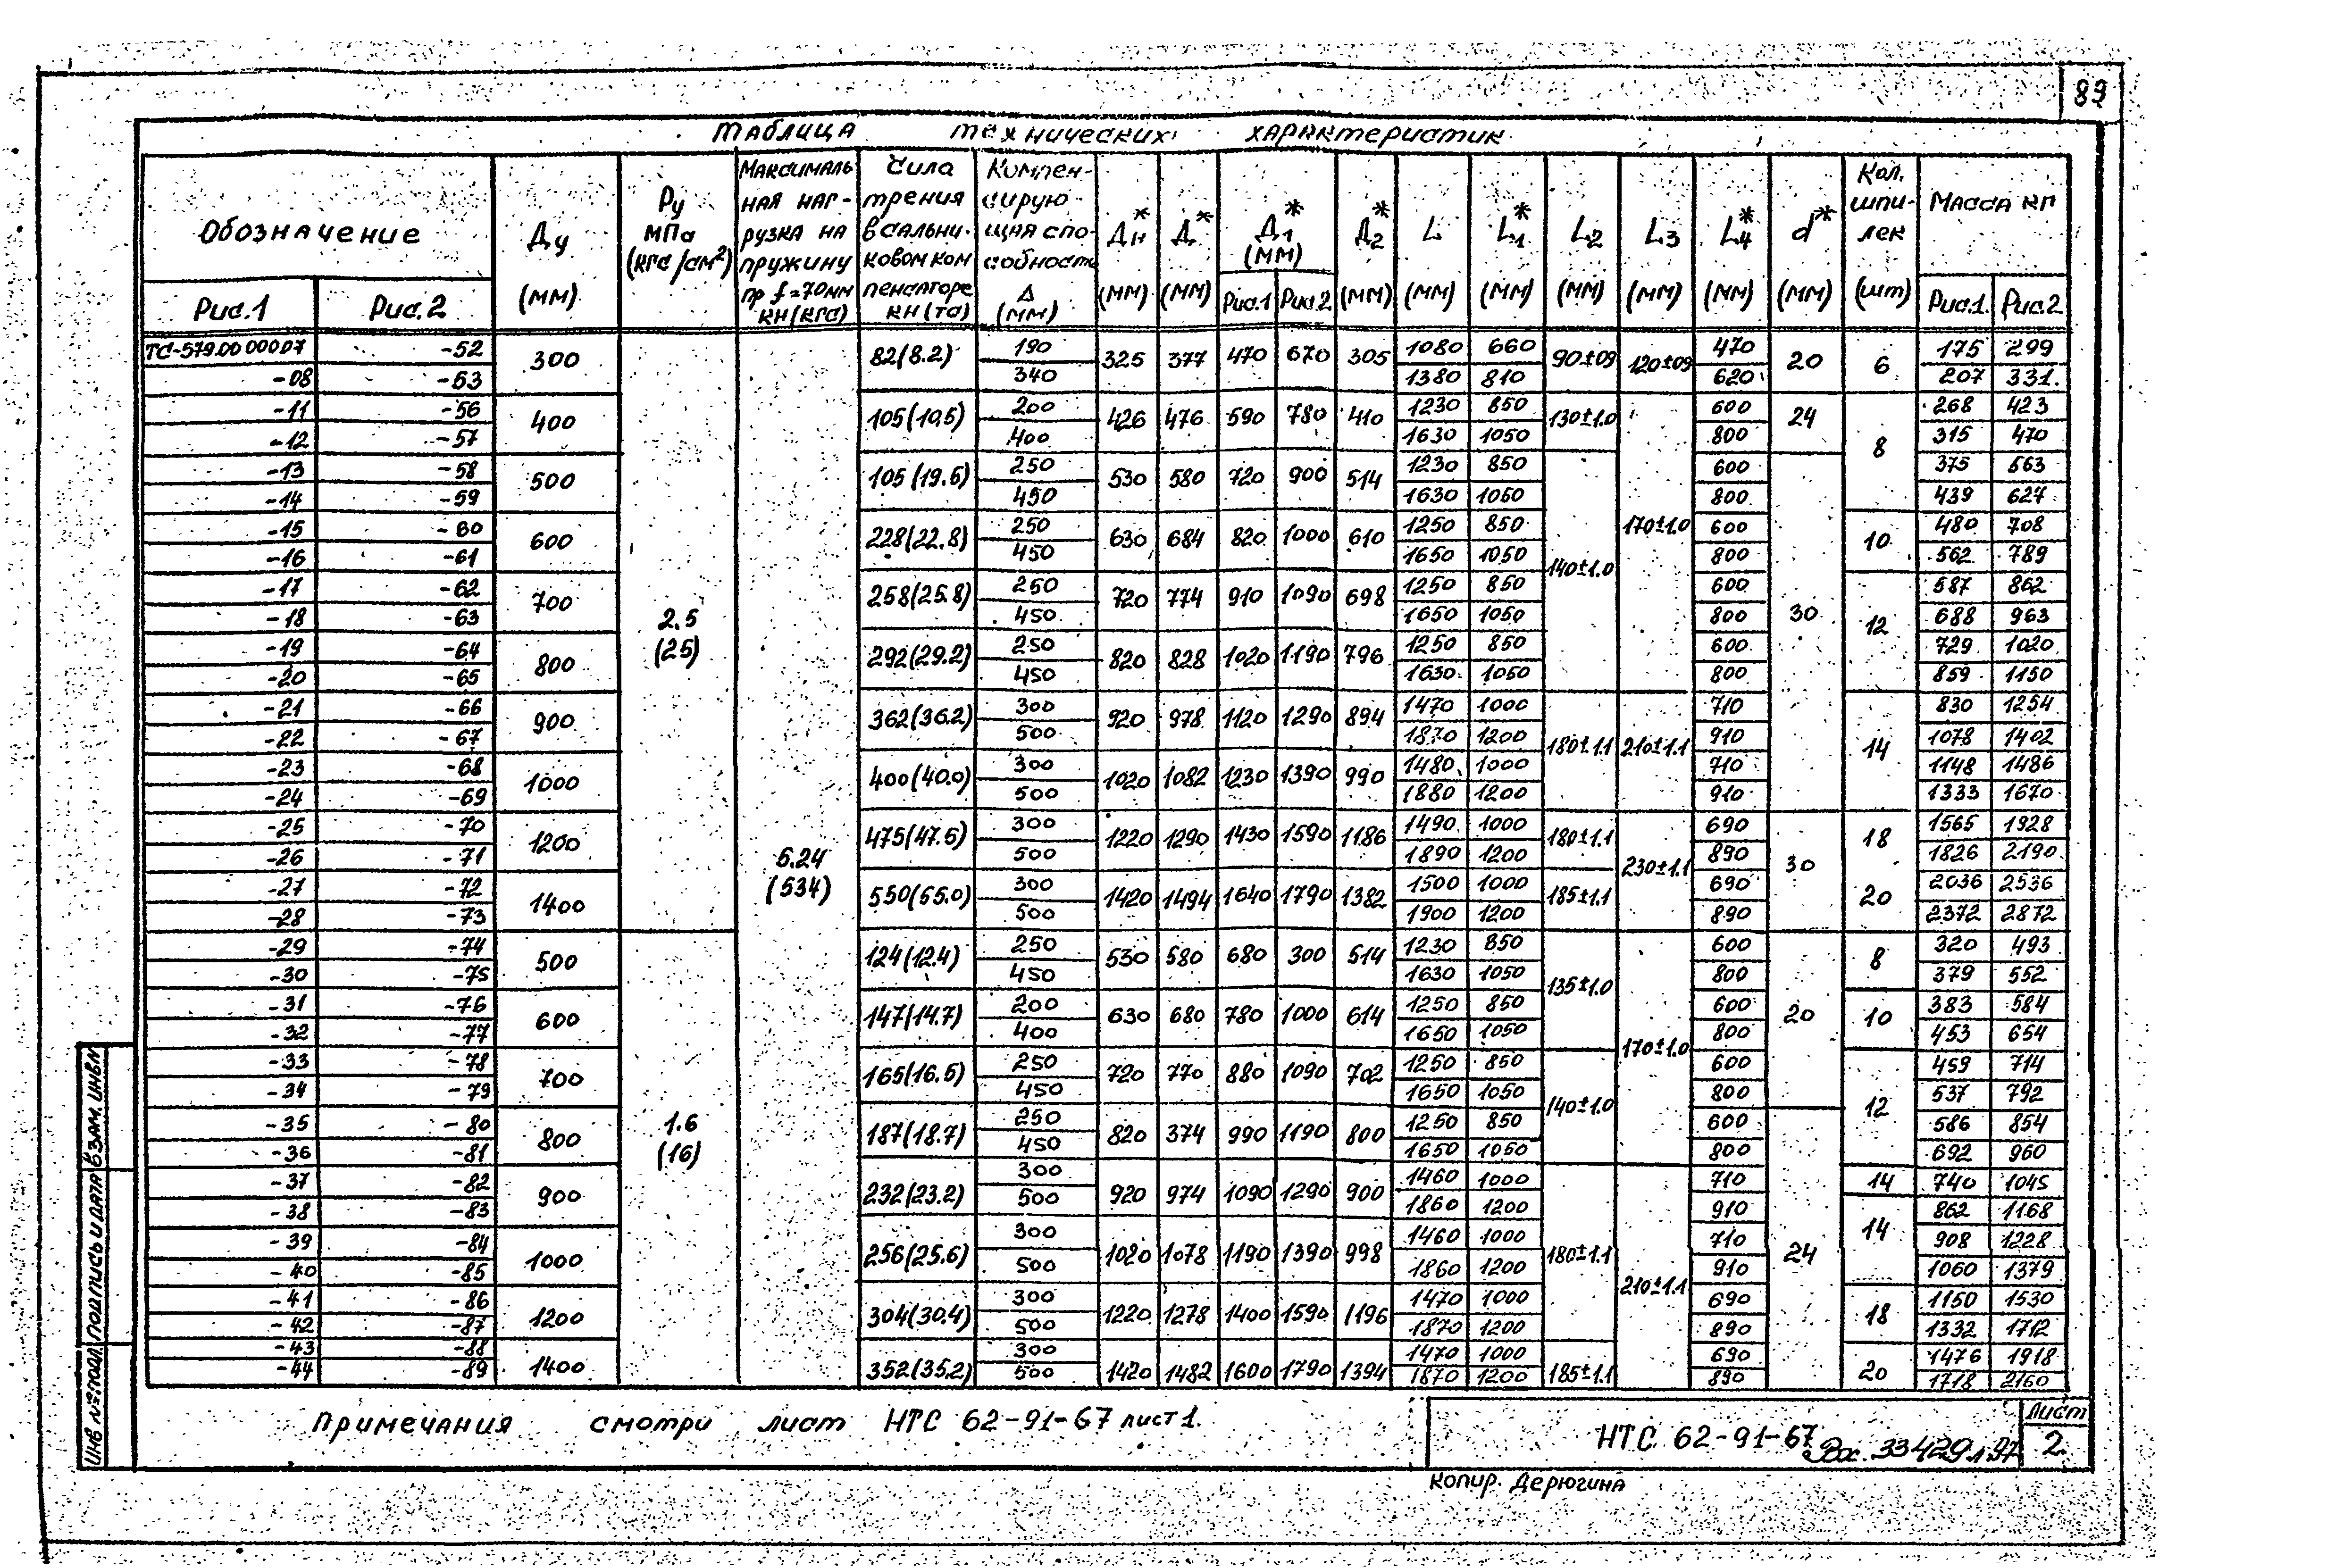 89
Таблица технических характеристик
Обозначение Ду (мм) Ру МПа (кгс/см²) Максимальная нагрузка на пружину пр f=70мм кН(кгс) Сила трения в сальниковом компенсаторе кН(тс) Компенсирующая способность Δ (мм) Дн* (мм) Д* (мм) Д1* (мм) Д2* (мм) L (мм) L1* (мм) L2 (мм) L3 (мм) L4* (мм) d* (мм) Кол. шпилек (шт) Масса кг
Рис.1 Рис.2 Рис.1 Рис.2 Рис.1 Рис.2
ТС-579.00 000 07 -52 300 82(8.2) 190 325 377 470 670 305 1080 660 90±09 120±09 470 20 6 175 299
-08 -53 340 1380 810 620 207 331
-11 -56 400 105(10.5) 200 426 476 590 780 410 1230 850 130±1.0 600 24 268 423
-12 -57 400 1630 1050 800 8 315 470
-13 -58 500 105(19.5) 250 530 580 720 900 514 1230 850 600 375 563
-14 -59 450 1630 1050 800 439 627
-15 -60 600 228(22.8) 250 630 684 820 1000 610 1250 850 170±1.0 600 10 480 708
-16 -61 450 1650 1050 140±1.0 800 562 789
-17 -62 700 258(25.8) 250 720 774 910 1090 698 1250 850 600 587 862
-18 -63 2.5 450 1650 1050 800 30 12 688 963
-19 -64 800 (25) 292(29.2) 250 820 828 1020 1190 796 1250 850 600 729 1020
-20 -65 450 1630 1050 800 859 1150
-21 -66 900 362(36.2) 300 920 978 1120 1290 894 1470 1000 710 830 1254
-22 -67 500 1870 1200 180±1.1 210±1.1 910 14 1078 1402
-23 -68 1000 400(40.0) 300 1020 1082 1230 1390 990 1480 1000 710 1148 1486
-24 -69 500 1880 1200 910 1333 1670
-25 -70 1200 475(47.5) 300 1220 1290 1430 1590 1186 1490 1000 180±1.1 690 18 1565 1928
-26 -71 5.24 500 1890 1200 230±1.1 890 30 1826 2190
-27 -72 1400 (534) 550(55.0) 300 1420 1494 1640 1790 1382 1500 1000 185±1.1 690 20 2036 2536
-28 -73 500 1900 1200 890 2372 2872
-29 -74 500 124(12.4) 250 530 580 680 300 514 1230 850 600 8 320 493
-30 -75 450 1630 1050 135±1.0 800 379 552
-31 -76 600 147(14.7) 200 630 680 780 1000 614 1250 850 600 20 10 383 584
-32 -77 400 1650 1050 170±1.0 800 453 654
-33 -78 700 165(16.5) 250 720 770 880 1090 702 1250 850 600 459 714
-34 -79 450 1650 1050 140±1.0 800 12 537 792
-35 -80 800 1.6 187(18.7) 250 820 374 990 1190 800 1250 850 600 586 854
-36 -81 (16) 450 1650 1050 800 692 960
-37 -82 900 232(23.2) 300 920 974 1090 1290 900 1460 1000 710 14 740 1045
-38 -83 500 1860 1200 910 14 862 1168
-39 -84 1000 256(25.6) 300 1020 1078 1190 1390 998 1460 1000 180±1.1 710 24 908 1228
-40 -85 500 1860 1200 210±1.1 910 1060 1379
-41 -86 1200 304(30.4) 300 1220 1278 1400 1590 1196 1470 1000 690 18 1150 1530
-42 -87 500 1870 1200 890 1332 1712
-43 -88 1400 352(35.2) 300 1420 1482 1600 1790 1394 1470 1000 185±1.1 690 20 1476 1918
-44 -89 500 1870 1200 890 1718 2160
Примечания смотри лист НТС 62-91-67 лист 1.
НТС 62-91-67
Вх. 33429 л 97
Лист
2
Копир. Дерюгина
Инв № подл. Подпись и дата Взам. инв №